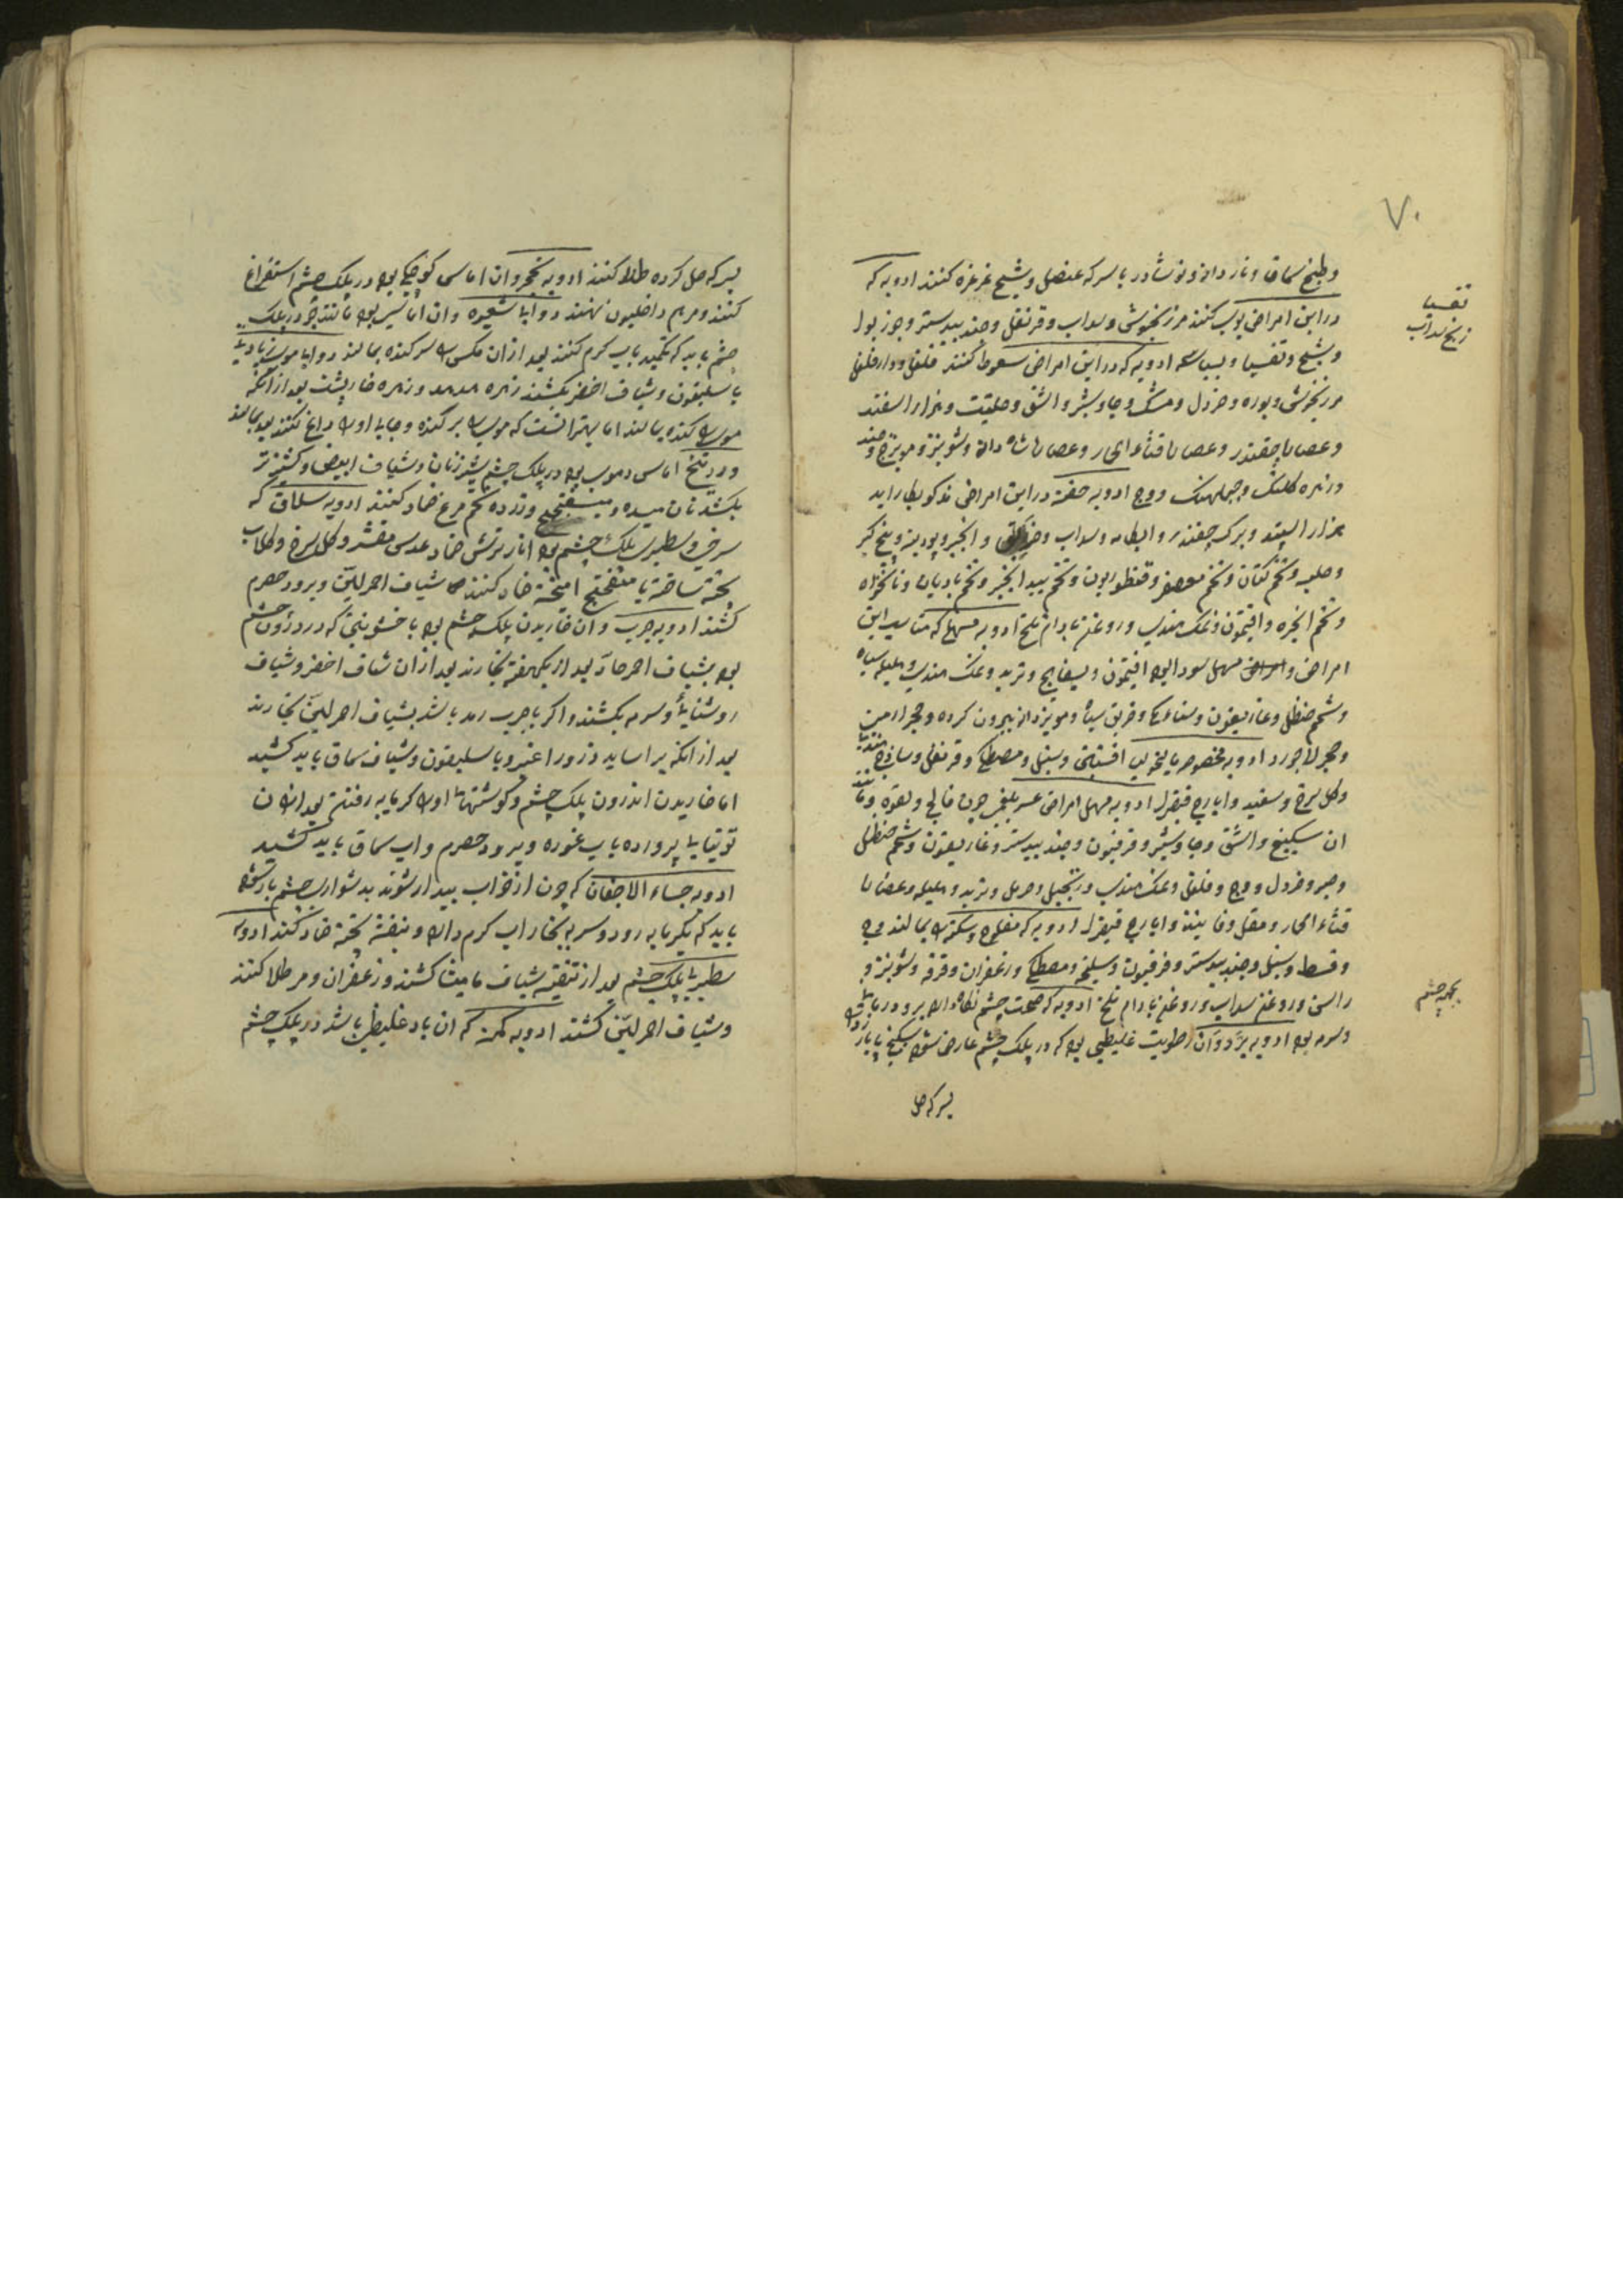 ۷۰
و طبیخ سماق و نار دانه و نوشادر با سرکه عنصل و شیح غرغره کنند ادویه که
در این امراض بوی کنند مرزنجوش و سداب و قرنفل و جندبیدستر و جوز بوا
و شیح و تفسیا و بسباسه ادویه که در این امراض سعوط کنند فلفل و دارفلفل
مرزنجوش و بوره و خردل و مشک و جاوشیر و اشق و حلتیت و هزار اسفند
و عصاره چقندر و عصاره قثاء الحمار و عصاره شاه دانه و شونیز و مویزج و جند
و زهره کلنک و وج ادویه حقنه در این امراض مذکور بکار اید
هزار اسپند و برک چقندر و سداب و انجیر و پودینه و بیخ کبر
و حلبه و تخم کتان و تخم معصفر و قنطوریون و تخم بید انجیر و تخم بادیان و نانخواه
و تخم انجره و افتیمون و نمک هندی و روغن بادام تلخ ادویه مسهل که مناسب این
امراض و مسهل سودا بود افتیمون و بسفایج و تربد و نمک هندی و هلیله سیاه
و شحم حنظل و غاریقون و سناء مکی و خربق سیاه و مویز دانه بیرون کرده و حجر ارمنی
و حجر لاجورد ادویه مخصوصه بمالیخولیا افسنتین و سنبل و مصطکی و قرنفل و ساذج هندی
و کل سرخ و سفید و ایارج فیقرا ادویه مسهل امراض عسر بلغمی چون فالج و لقوه و مانند
ان سکبینج و اشق و جاوشیر و فرفیون و جندبیدستر و غاریقون و شحم حنظل
و صبر و خردل و وج و فلفل و نمک هندی و زنجبیل و حرمل و تربد و هلیله و عصاره
قثاء الحمار و مقل و ایارج فیقرا ادویه که مفلوج و سکته را بمالند وج
و قسط و سنبل و جندبیدستر و فرفیون و سلیخه و مصطکی و زعفران و قرفه و شونیز و
راسن و روغن سداب و روغن بادام تلخ ادویه که صحت چشم نکاه دارد
و سرمه بود ادویه برد و آن رطوبت غلیظی بود که در پلک چشم عارض شود سکبینج
بسرکه حل
تفسیا
بیخ سداب
چشم
بسرکه حل کرده طلا کنند ادویه تحجر و ان اماسی کوچک بود در پلک چشم استفراغ
کنند و مرهم داخلیون نهند دواء شعیره و ان اماسی بود مانند جو در پلک
چشم باید که تکمید باب کرم کنند بعد از ان مکس را سر کنده بمالند
باسلیقون و شیاف اخضر بکشند زهره هدهد و زهره خارپشت بعد از آنکه
موی را کنده بمالند اما بهتر انست که موی را بر کنده و جای او را داغ کنند
وردینج اماسی دموی بود در پلک چشم شیر زنان و شیاف ابیض و کشنیز تر
بکشند نان میده و میفختج و زرده تخم مرغ ضماد کنند ادویه سلاق که
سرخی و سطبری پلک چشم بود انار ترش ضماد عدس مقشر و کل سرخ و کلاب
پخته ساخته با میفختج امیخته ضماد کنند شیاف احمر لین و برود حصرم
کشند ادویه جرب و ان خاریدن پلک چشم بود با خشونتی که در درون چشم
بود بشیاف احمر حاد بعد از یکهفته بخارند بعد از ان شیاف اخضر و شیاف
روشنایی و سرمه بکشند و اکر با جرب رمد باشد بشیاف احمر لین بخارند
بعد از انکه بیاساید ذرور اغبر و باسلیقون و شیاف سماق باید کشید
اما خاریدن اندرون پلک چشم و کوشتها او را کرمابه رفتن بعد از ان
توتیای پرورده باب غوره و برود حصرم و اب سماق باید کشید
ادویه جساء الاجفان که چون از خواب بیدار شوند بدشواری چشم باز شود
باید که بکرمابه رود و سر به بخار اب کرم دارد و بنفشه پخته ضماد کنند ادویه
سطبری پلک چشم بعد از تنقیه شیاف مامیثا کشند و زعفران و مر طلا کنند
و شیاف احمر لین کشند ادویه کمنه که ان باد غلیظ باشد در پلک چشم